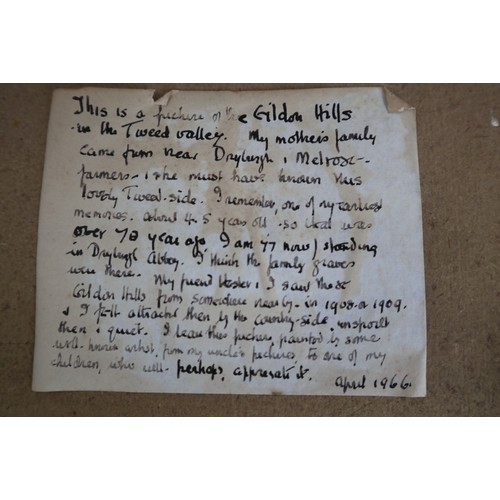 This is a picture of the Eildon Hills
in the Tweed valley. My mother's family
came from near Dryburgh & Melrose -
farmers - & she must have known this
lovely Tweed-side. I remember, one of my earliest
memories. about 4.5 years old - so that was
over 70 year ago, I am 77 now) standing
in Dryburgh Abbey. I think the family graves
were there. My friend Hester & I saw these
Eildon Hills from somewhere nearby - in 1908 or 1909.
& I felt attracted then by the country-side, unspoilt
then & quiet. I leave this picture, painted by some
well-known artist, from my uncle's pictures, to one of my
children, who will - perhaps, appreciate it.
April 1966.